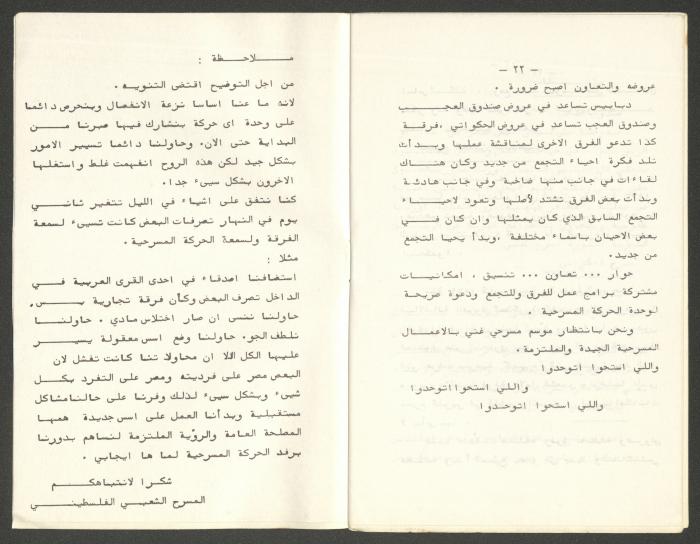 - ٢٢ -
عروضه والتعاون اصبح ضرورة .
دبابيس تساعد في عروض صندوق العجب
وصندوق العجب تساعد في عروض الحكواتي ، فرقة
كذا تدعو الفرق الاخرى لمناقشة عملها وبدأت
تلد فكرة احياء التجمع من جديد وكان هناك
لقاءات في جانب منها صاخبة وفي جانب هادئة
وبدأت بعض الفرق تشتد لأصلها وتعود لاحياء
التجمع السابق الذي كان يمثلها وان كان في
بعض الاحيان باسماء مختلفة ، وبدأ يحيا التجمع
من جديد .
حوار ... تعاون ... تنسيق ، امكانيات
مشتركة برامج عمل للفرق وللتجمع ودعوة صريحة
لوحدة الحركة المسرحية .
ونحن بانتظار موسم مسرحي غني بالاعمال
المسرحية الجيدة والملتزمة .
واللي استحوا اتوحدوا
واللي استحوا اتوحدوا
واللي استحوا اتوحدوا
ملاحظة :
من اجل التوضيح اقتضى التنويه .
لانه ما عنا اساسا نزعة الانفصال وبنحرص دائما
على وحدة اى حركة بنشارك فيها صبرنا من
البداية حتى الان . وحاولنا دائما تسيير الامور
بشكل جيد لكن هذه الروح انفهمت غلط واستغلها
الاخرون بشكل سيىء جدا .
كنا نتفق على اشياء في الليل تتغير ثاني
يوم في النهار تصرفات البعض كانت تسيىء لسمعة
الفرقة ولسمعة الحركة المسرحية .
مثلا :
استضافنا اصدقاء في احدى القرى العربية في
الداخل تصرف البعض وكأن فرقة تجارية بس .
حاولنا ننسى ان صار اختلاس مادي . حاولنا
نلطف الجو . حاولنا وضع اسس معقولة يسير
عليها الكل الا ان محاولاتنا كانت تفشل لان
البعض مصر على فرديته ومصر على التفرد بكل
شيىء وبشكل سيىء لذلك وفرنا على حالنا مشاكل
مستقبلية وبدأنا العمل على اسس جديدة همها
المصلحة العامة والرؤية الملتزمة لنساهم بدورنا
برفد الحركة المسرحية لما هو ايجابي .
شكرا لانتباهكم
المسرح الشعبي الفلسطيني